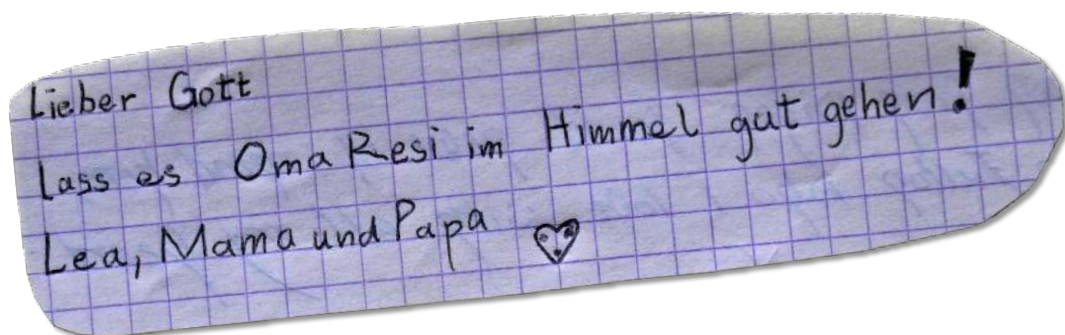 Lieber Gott
Lass es Oma Resi im Himmel gut gehen!
Lea, Mama und Papa